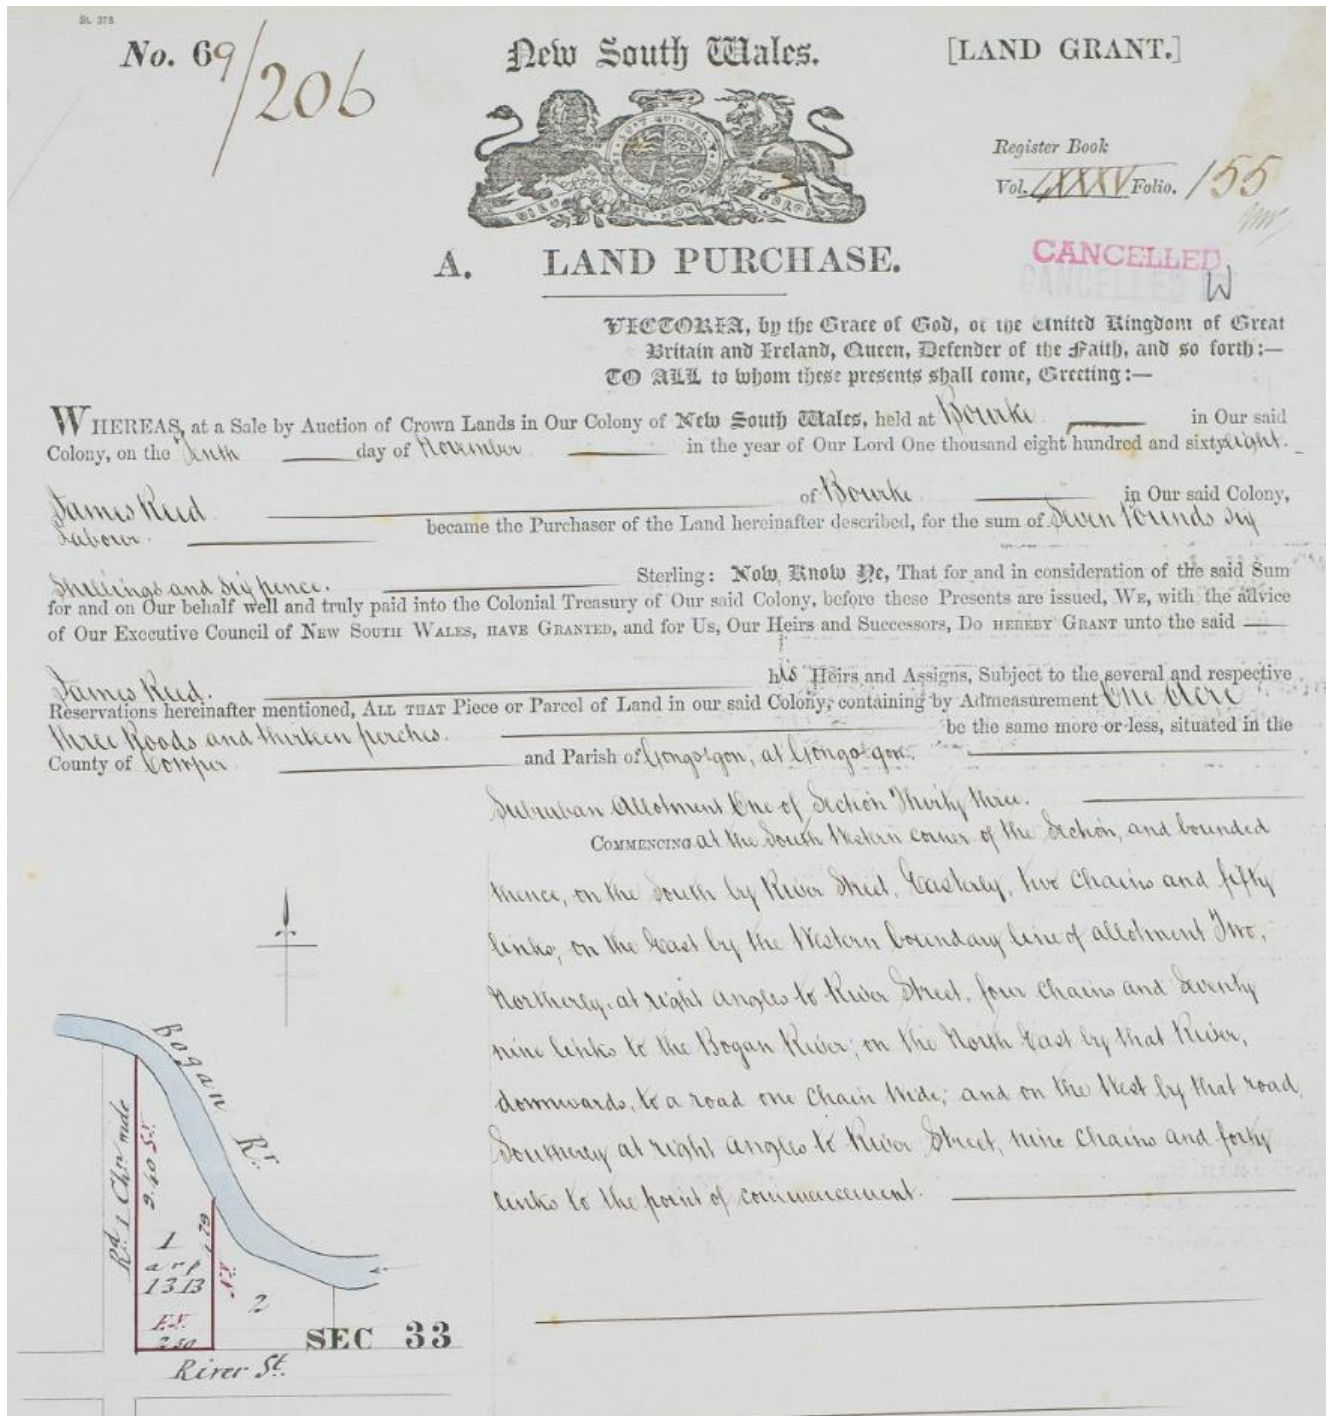 St. 378
No. 69/206
New South Wales.
[LAND GRANT.]
Register Book
Vol. LXXXV Folio. 155
CANCELLED
CANCELLED
W
A. LAND PURCHASE.
VICTORIA, by the Grace of God, of the United Kingdom of Great
Britain and Ireland, Queen, Defender of the Faith, and so forth:—
TO ALL to whom these presents shall come, Greeting:—
WHEREAS, at a Sale by Auction of Crown Lands in Our Colony of New South Wales, held at Bourke in Our said
Colony, on the Tenth day of November in the year of Our Lord One thousand eight hundred and sixty eight.
James Reed of Bourke in Our said Colony,
Labourer. became the Purchaser of the Land hereinafter described, for the sum of Seven Pounds six
Shillings and Six pence. Sterling: Now, Know Ye, That for and in consideration of the said Sum
for and on Our behalf well and truly paid into the Colonial Treasury of Our said Colony, before these Presents are issued, WE, with the advice
of Our Executive Council of NEW SOUTH WALES, HAVE GRANTED, and for Us, Our Heirs and Successors, DO HEREBY GRANT unto the said
James Reed. his Heirs and Assigns, Subject to the several and respective
Reservations hereinafter mentioned, ALL THAT Piece or Parcel of Land in our said Colony, containing by Admeasurement One Acre
three Roods and thirteen perches. be the same more or less, situated in the
County of Cowper and Parish of Gongolgon, at Gongolgon.
Suburban Allotment One of Section Thirty three.
COMMENCING at the South Western corner of the Section, and bounded
thence, on the South by River Street, Easterly, two chains and fifty
links; on the East by the Western boundary line of allotment Two,
Northerly, at right angles to River Street, four chains and seventy
nine links to the Bogan River; on the North East by that River,
downwards, to a road one chain wide; and on the West by that road,
Southerly at right angles to River Street, nine chains and forty
links to the point of commencement.
Bogan Rr.
Rd. 1 Chn wide
9.40 S.Y.
4.79
1
a r p
1 3 13
2
2.50
SEC 33
River St.